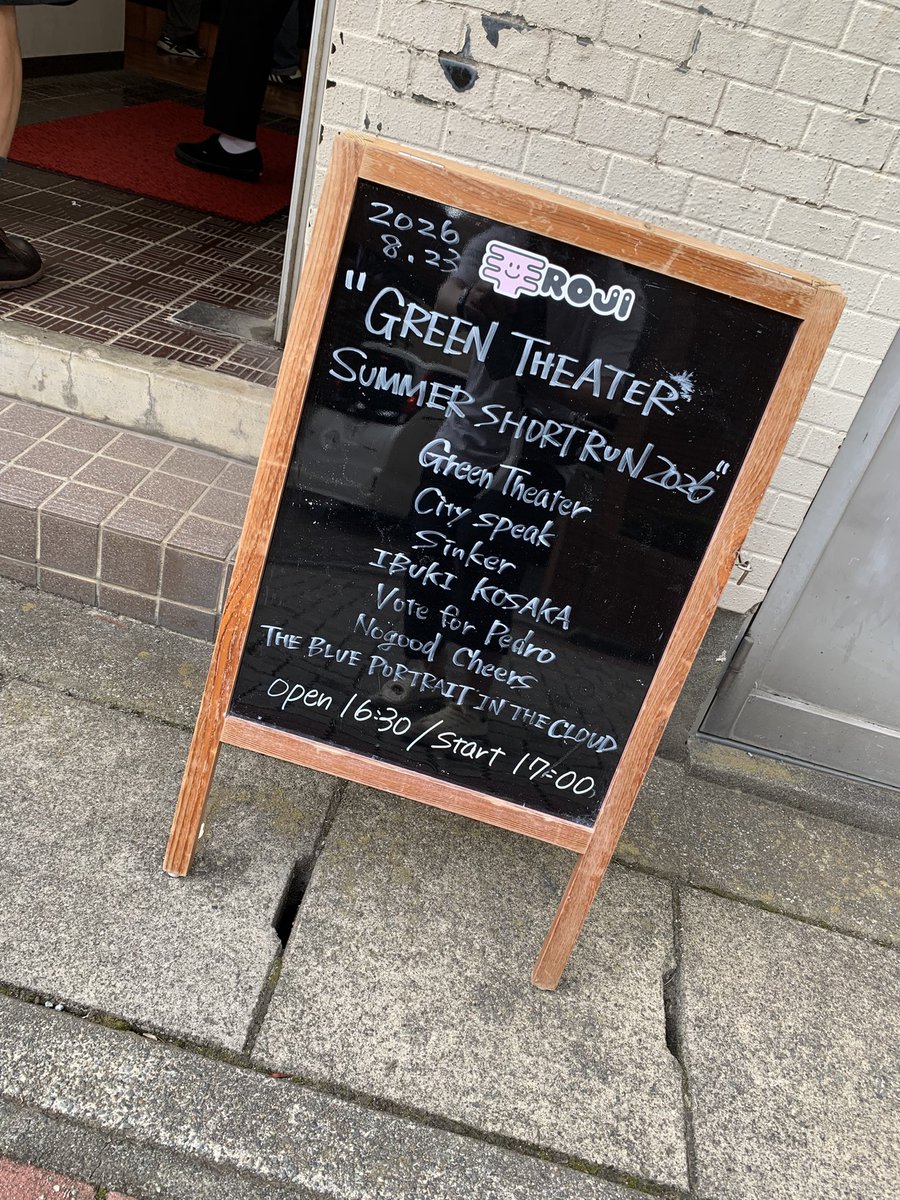 2026
8.23
ROJI
"GREEN THEATER
SUMMER SHORT RUN 2026"
Green Theater
City speak
Sinker
IBUKI KOSAKA
Vote for Pedro
Nogood Cheers
THE BLUE PORTRAIT IN THE CLOUD
open 16:30 / start 17:00